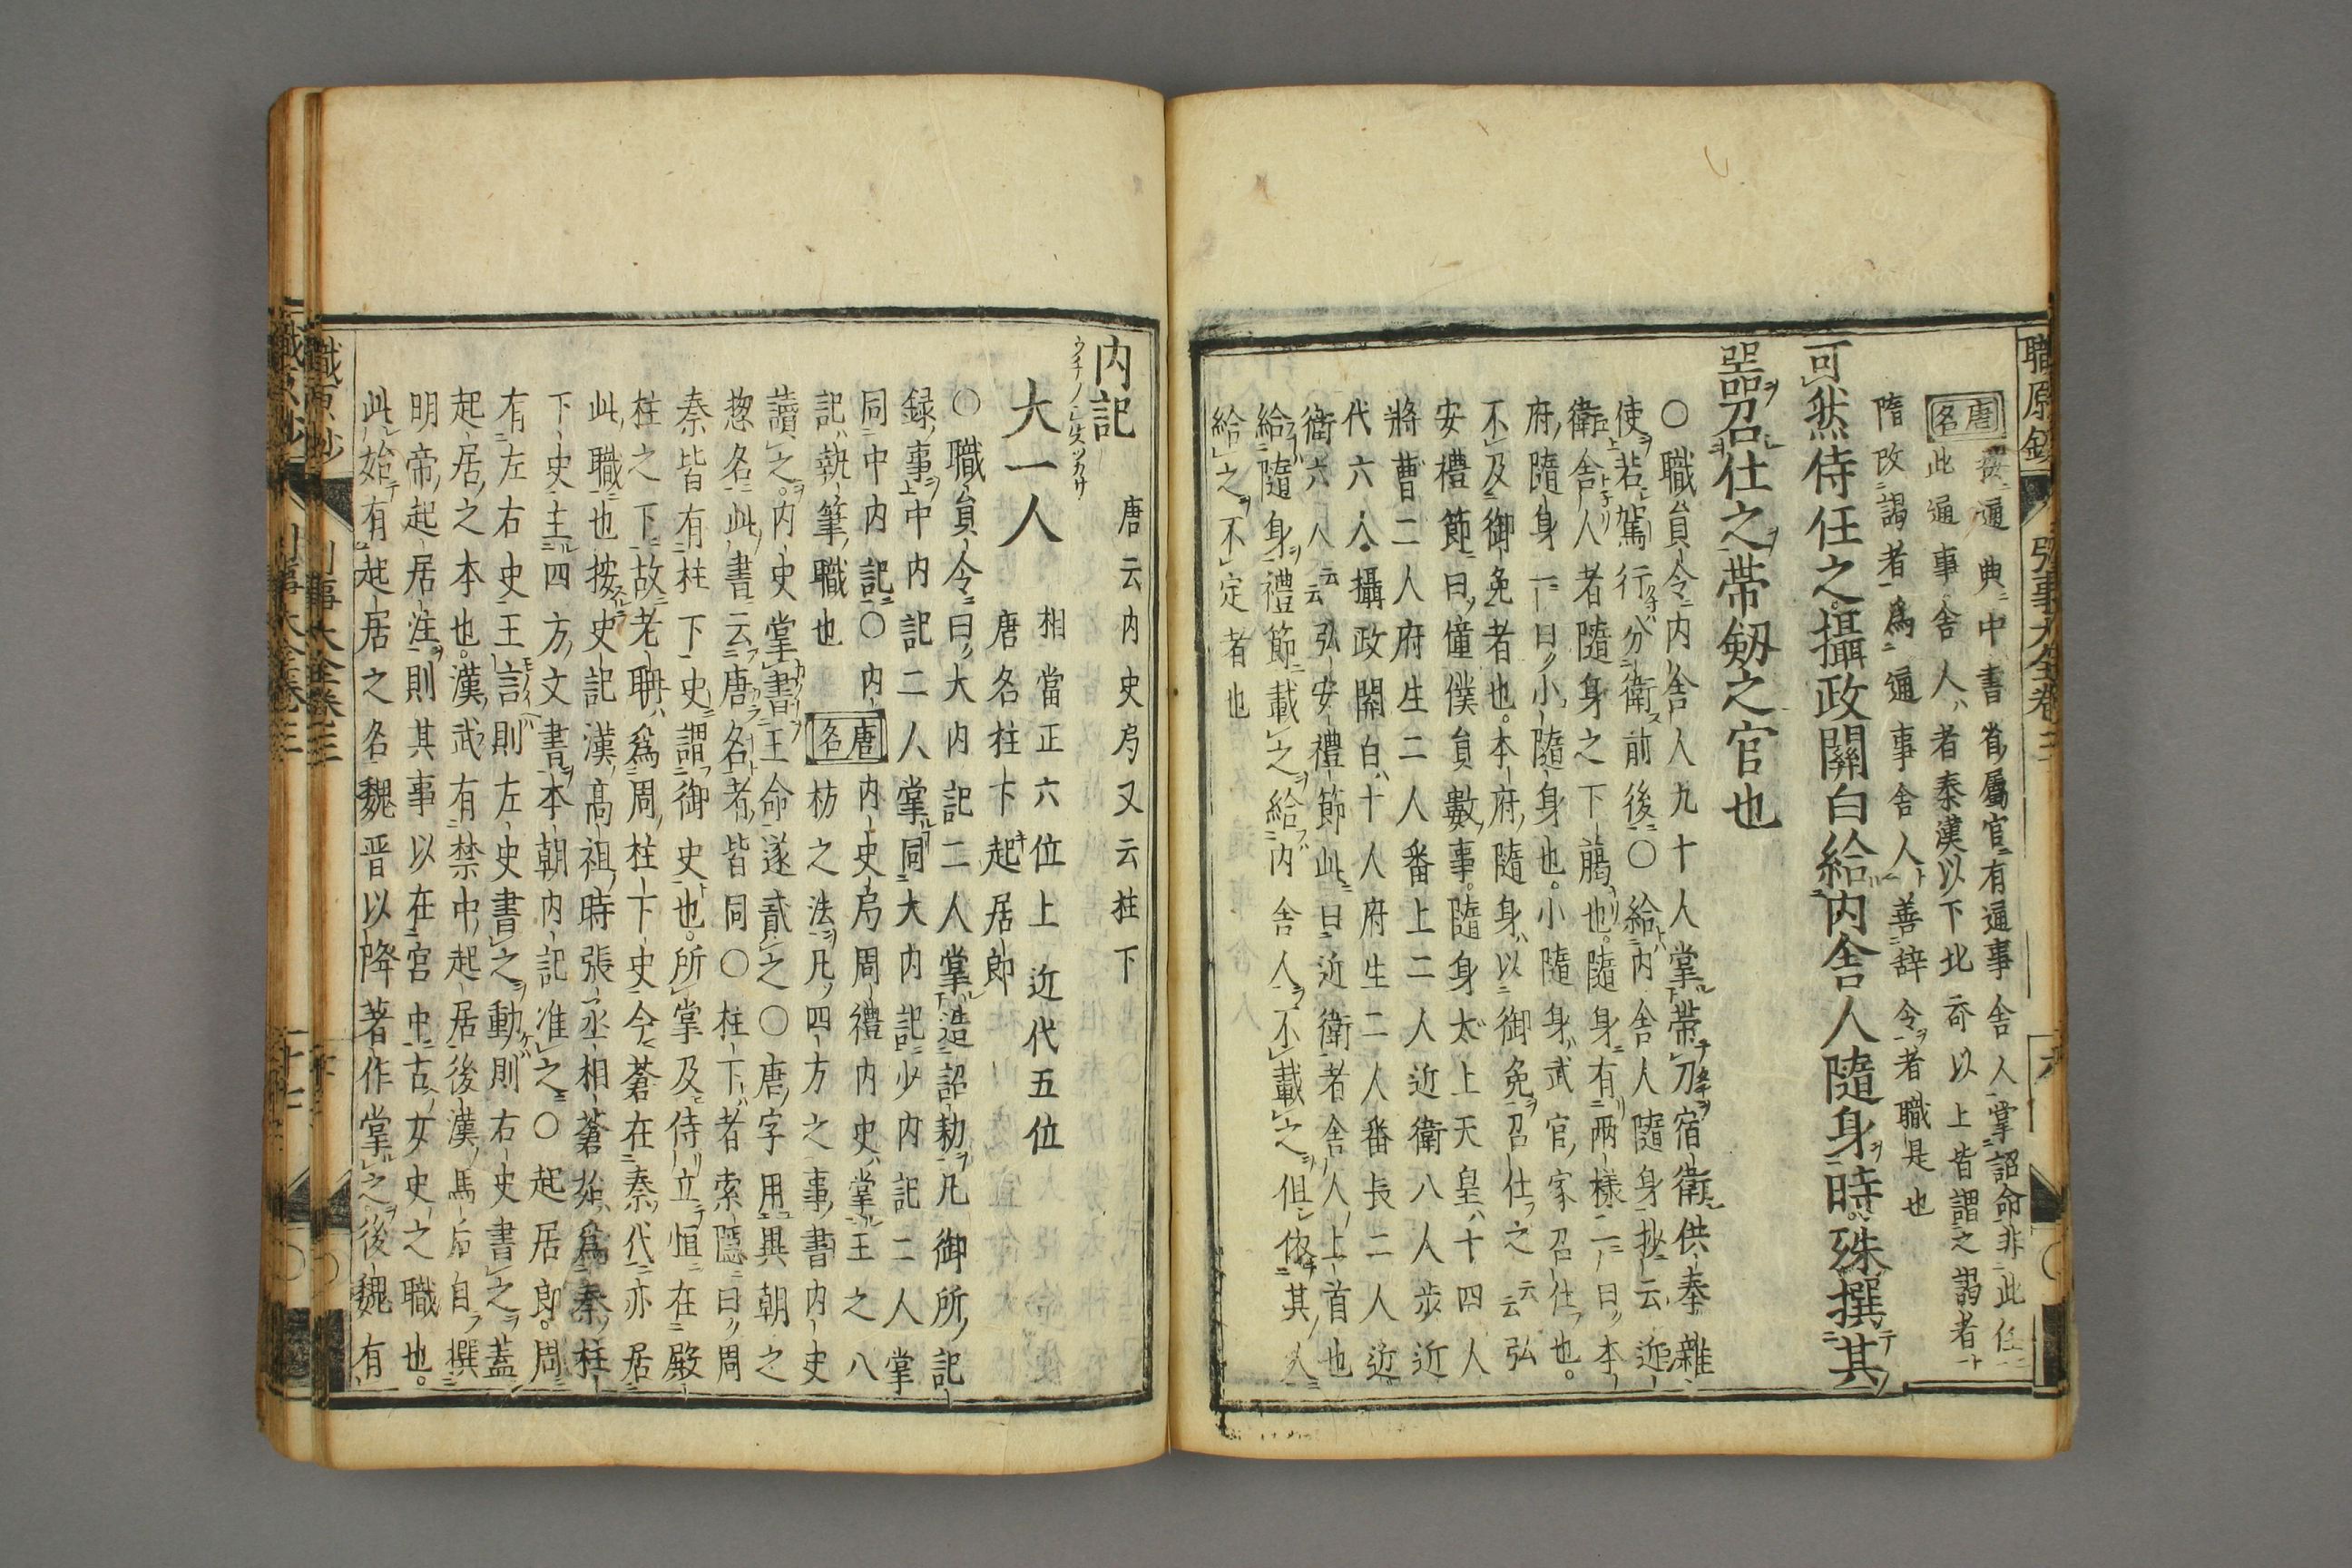 職原鈔
唐名 按通典中書省屬官有通事舍人掌詔命非此任
此通事舍人者秦漢以下北斉以上皆謂之謁者
隋改謁者爲通事舍人善辞令者職是也
可然侍任之攝政關白給内舎人隨身時殊撰其
器召仕之帶劔之官也
〇職貟令内舎人九十人掌帶刀宿衛供奉雜
使若駕行分衛前後〇給内舎人隨身抄云近
衛舎人者隨身之下﨟也隨身有两様二曰本
府隨身一曰小隨身也小隨身武官家召仕也
不及御免者也本府隨身以御免召仕之云云弘
安禮節曰僮僕貟數事隨身太上天皇十四人
將曹二人府生二人番上二人近衛八人歩近
代六人攝政關白十人府生二人番長二人近
衛六人云云弘安禮節此曰近衛者舎人上首也
給隨身禮節載之給内舎人不載之但依其人
給之不定者也
内記 唐云内史局又云柱下
ウチノシルスツカサ
大一人 相當正六位上近代五位
唐名柱下起居郎
〇職貟令曰大内記二人掌造詔勅凡御所記
録事中内記二人掌同大内記少内記二人掌
同中内記〇内
記執筆職也 唐名 内史局周禮内史掌王之八
枋之法凡四方之事書内史
讀之内史掌書王命遂貳之〇唐字用異朝之
惣名此書云唐名者皆同〇柱下者索隱曰周
秦皆有柱下史謂御史也所掌及侍立恒在殿
柱之下故老聃爲周柱下史今蒼在秦代亦居
此職也按史記漢髙祖時張丞相蒼始爲秦柱
下史主四方文書本朝内記准之〇起居郎周
有左右史王言則左史書之動則右史書之蓋
起居之本也漢武有禁中起居後漢馬后自撰
明帝起居注則其事以在宮中古女史之職也
此始有起居之名魏晋以降著作掌之後魏有